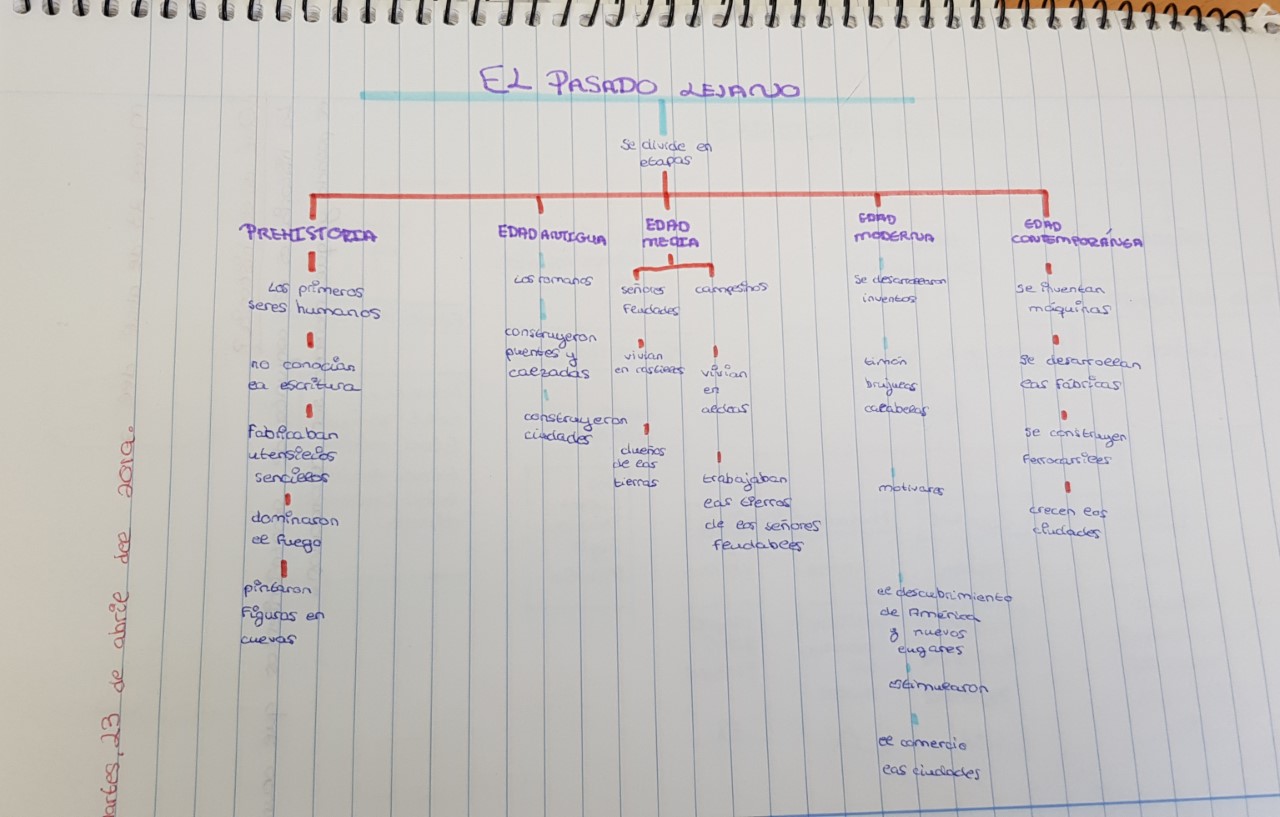 EL PASADO LEJANO
se divide en
etapas
PREHISTORIA
Los primeros
seres humanos
no conocían
la escritura
fabricaban
utensilios
sencillos
dominaron
el fuego
pintaron
figuras en
cuevas
EDAD ANTIGUA
Los romanos
construyeron
puentes y
calzadas
construyeron
ciudades
EDAD
MEDIA
señores
feudades
vivían
en castillos
dueños
de las
tierras
campesinos
vivían
en
aldeas
trabajaban
las tierras
de los señores
feudables
EDAD
MODERNA
se desarrollaron
inventos
timón
brújulas
calaberas
motivaros
el descubrimiento
de América
y nuevos
lugares
estimularon
el comercio
las ciudades
EDAD
CONTEMPORÁNEA
se inventan
máquinas
se desarrollan
las fábricas
se construyen
ferrocarriles
crecen los
ciudades
martes, 23 de abril del 2019.